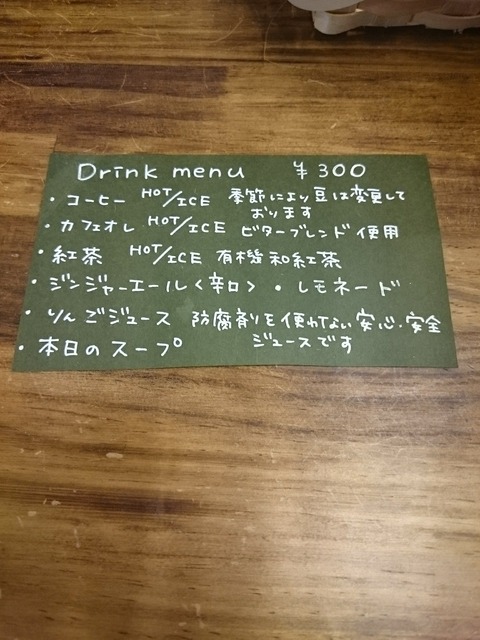 Drink menu ¥300
・コーヒー HOT/ICE 季節により豆は変更して
おります
・カフェオレ HOT/ICE ビターブレンド使用
・紅茶 HOT/ICE 有機和紅茶
・ジンジャーエール〈辛口〉 ・レモネード
・りんごジュース 防腐剤を使わない安心・安全
ジュースです
・本日のスープ